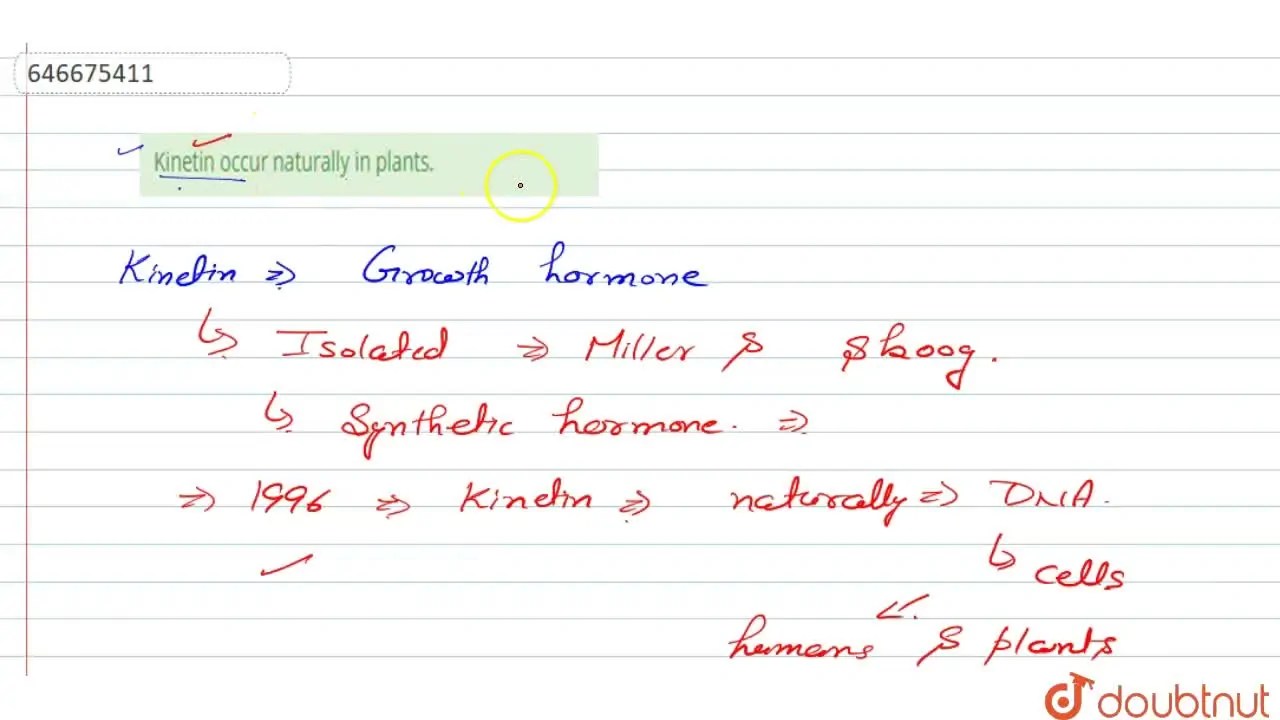 646675411
Kinetin occur naturally in plants.
Kinetin ⇒ Growth hormone
↳ Isolated ⇒ Miller & Skoog.
↳ Synthetic hormone. ⇒
⇒ 1996 ⇒ Kinetin ⇒ naturally ⇒ DNA.
↳ cells
humans & plants
doubtnut